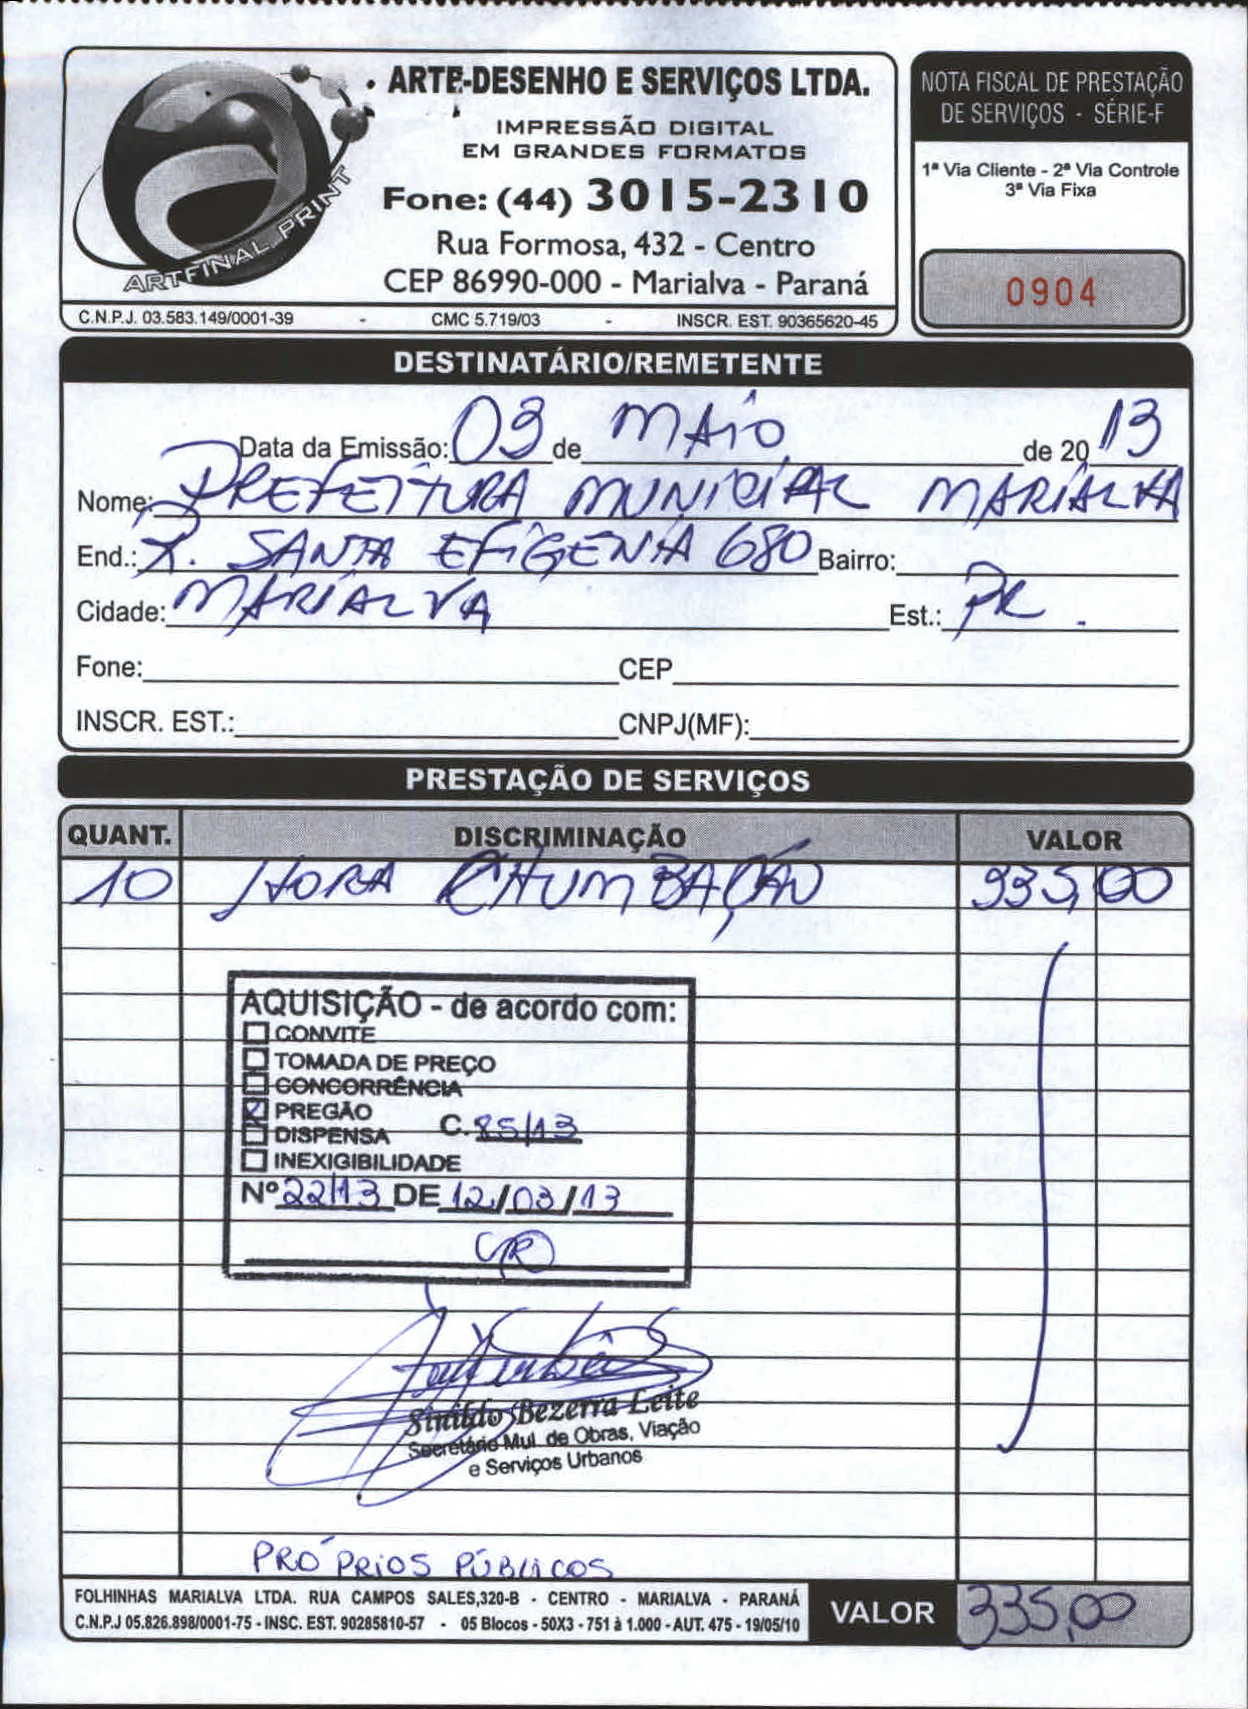 ARTE-DESENHO E SERVIÇOS LTDA.
IMPRESSÃO DIGITAL
EM GRANDES FORMATOS
Fone: (44) 3015-2310
Rua Formosa, 432 - Centro
CEP 86990-000 - Marialva - Paraná
ARTFINAL PRINT
C.N.P.J. 03.583.149/0001-39 - CMC 5.719/03 - INSCR. EST. 90365620-45
NOTA FISCAL DE PRESTAÇÃO
DE SERVIÇOS - SÉRIE-F
1ª Via Cliente - 2ª Via Controle
3ª Via Fixa
0904
DESTINATÁRIO/REMETENTE
Data da Emissão: 03 de MAIO de 2013
Nome: PREFEITURA MUNICIPAL MARIALVA
End.: R. SANTA EFIGENIA 680 Bairro:
Cidade: MARIALVA Est.: PR.
Fone: CEP
INSCR. EST.: CNPJ(MF):
PRESTAÇÃO DE SERVIÇOS
QUANT. DISCRIMINAÇÃO VALOR
10 HORA CHUMBAÇÃO 335,00
AQUISIÇÃO - de acordo com:
CONVITE
TOMADA DE PREÇO
CONCORRÊNCIA
PREGÃO
DISPENSA C. 85/13
INEXIGIBILIDADE
Nº 22/13 DE 12/03/13
Sinildo Bezerra Leite
Secretário Mul. de Obras, Viação
e Serviços Urbanos
PRÓPRIOS PÚBLICOS
FOLHINHAS MARIALVA LTDA. RUA CAMPOS SALES,320-B - CENTRO - MARIALVA - PARANÁ
C.N.P.J 05.826.898/0001-75 - INSC. EST. 90285810-57 - 05 Blocos - 50X3 - 751 à 1.000 - AUT. 475 - 19/05/10
VALOR 335,00